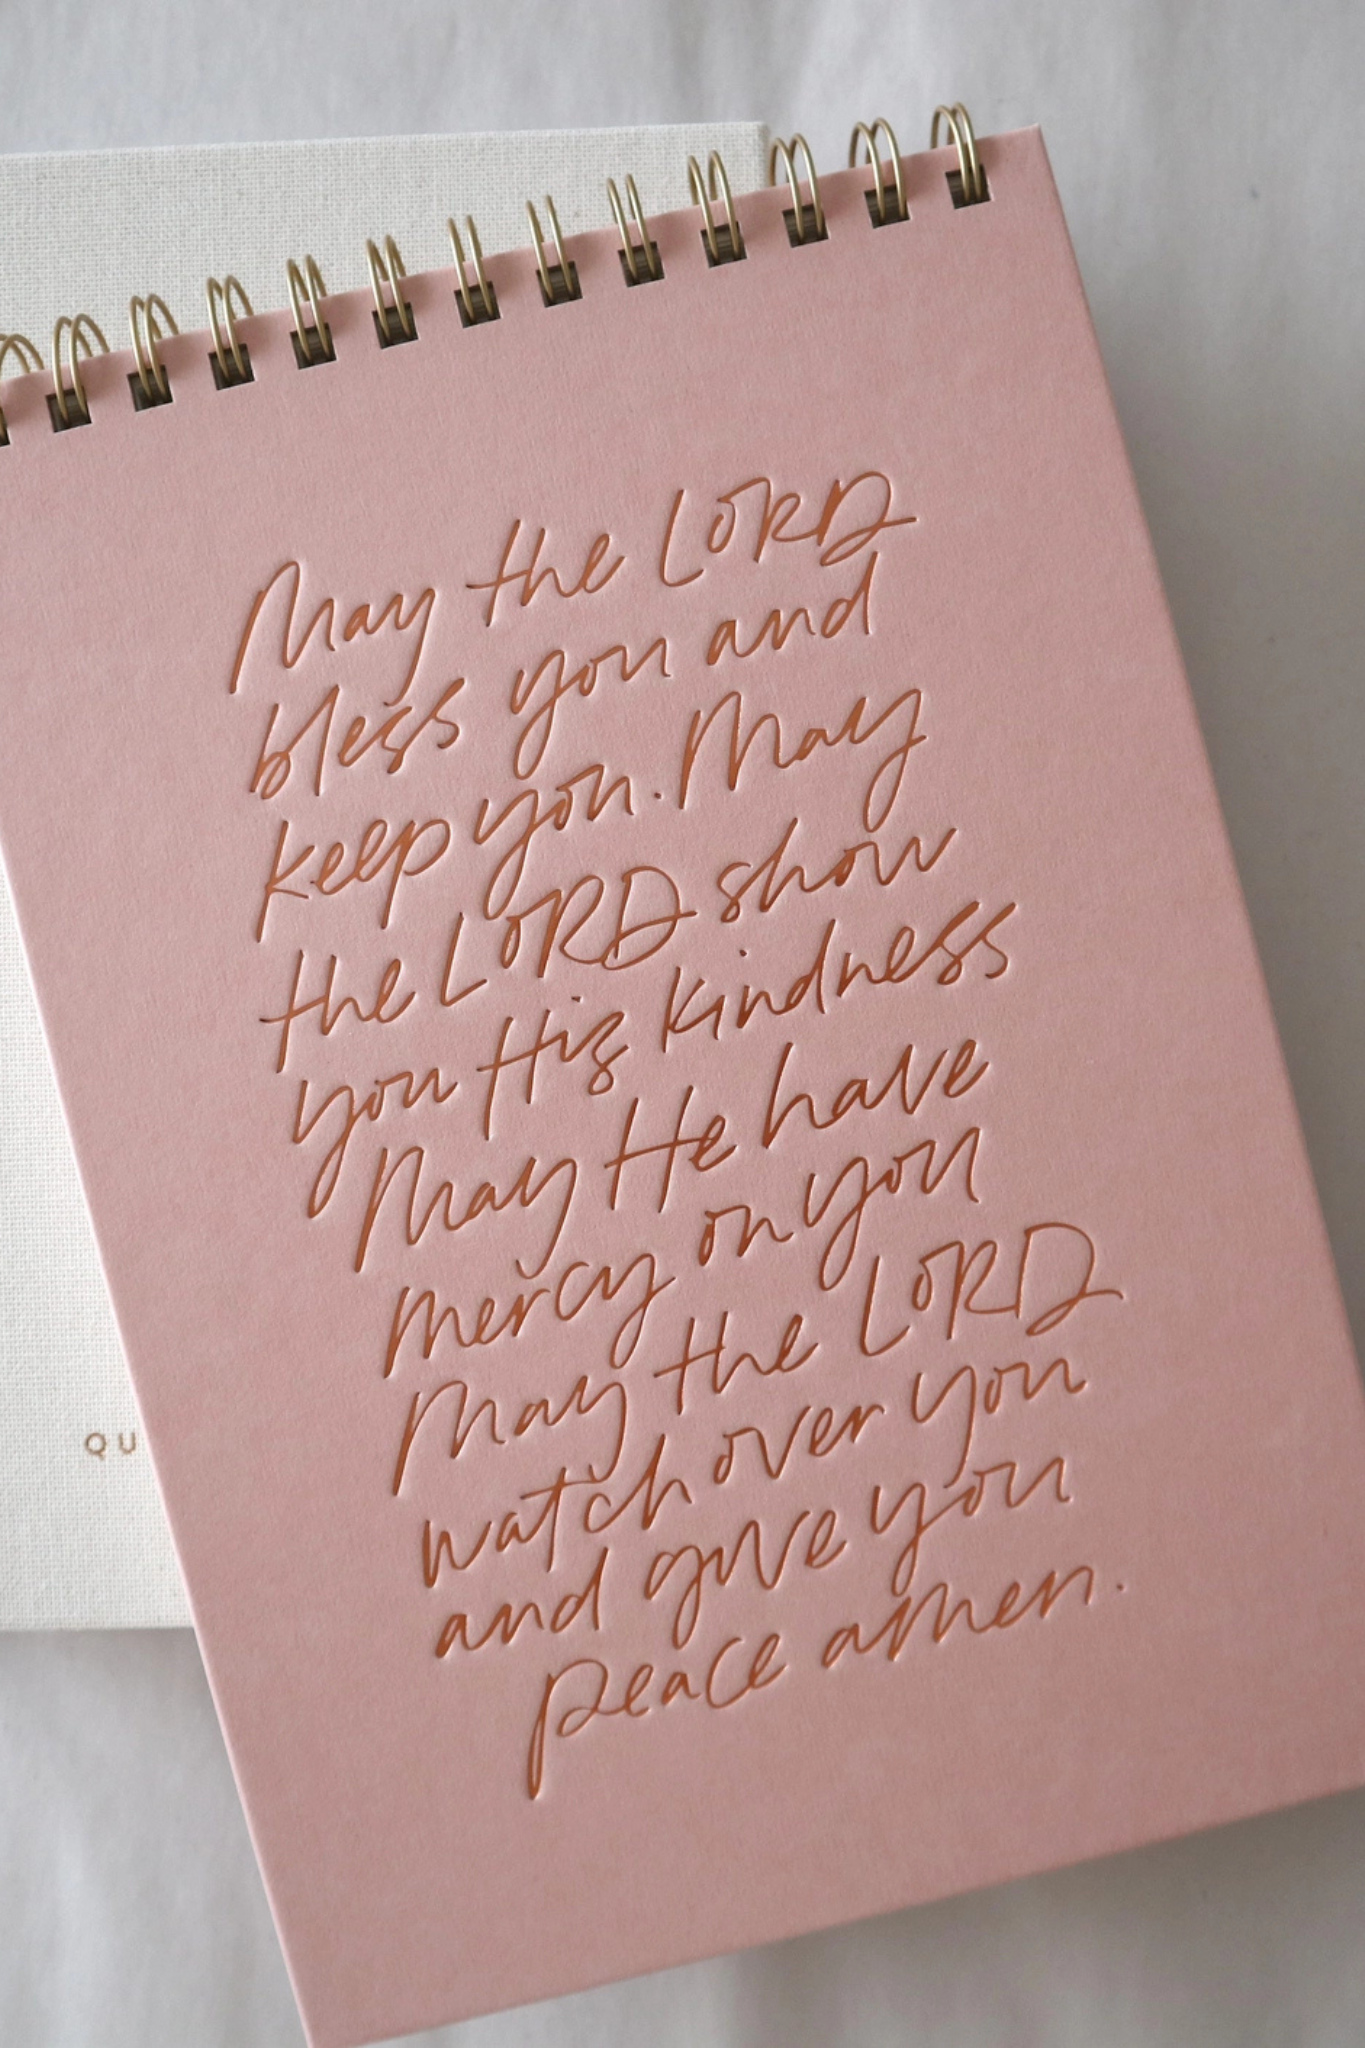 May the LORD
bless you and
keep you. May
the LORD show
you His kindness
May He have
mercy on you
May the LORD
watch over you
and give you
peace amen.
QU